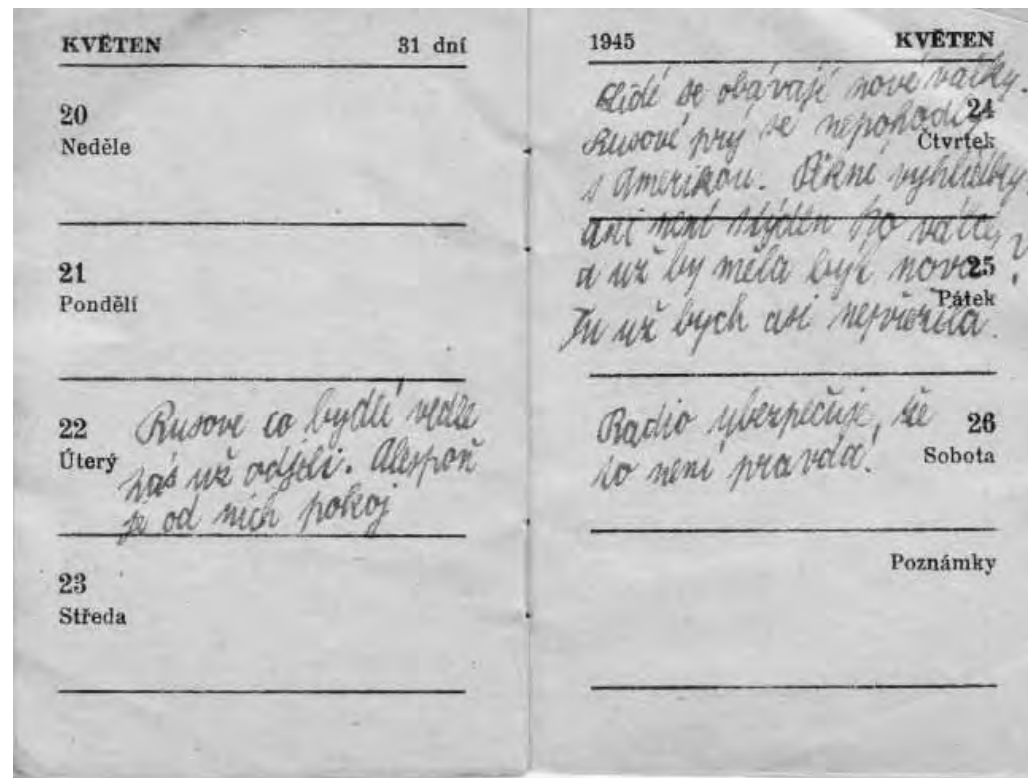 KVĚTEN 31 dní
20
Neděle
21
Pondělí
22
Úterý
Rusove co bydlí vedle
nás už odjeli. Alespoň
je od nich pokoj
23
Středa
1945 KVĚTEN
Lidé se obávají nové války.
24
Rusové prý se nepohodli
Čtvrtek
s Amerikou. Pěkné vyhlídky
asi není týden po válce
a už by měla být nova?
25
Pátek
Tu už bych asi nepřežila.
Radio ubezpečuje, že
26
to není pravda!
Sobota
Poznámky